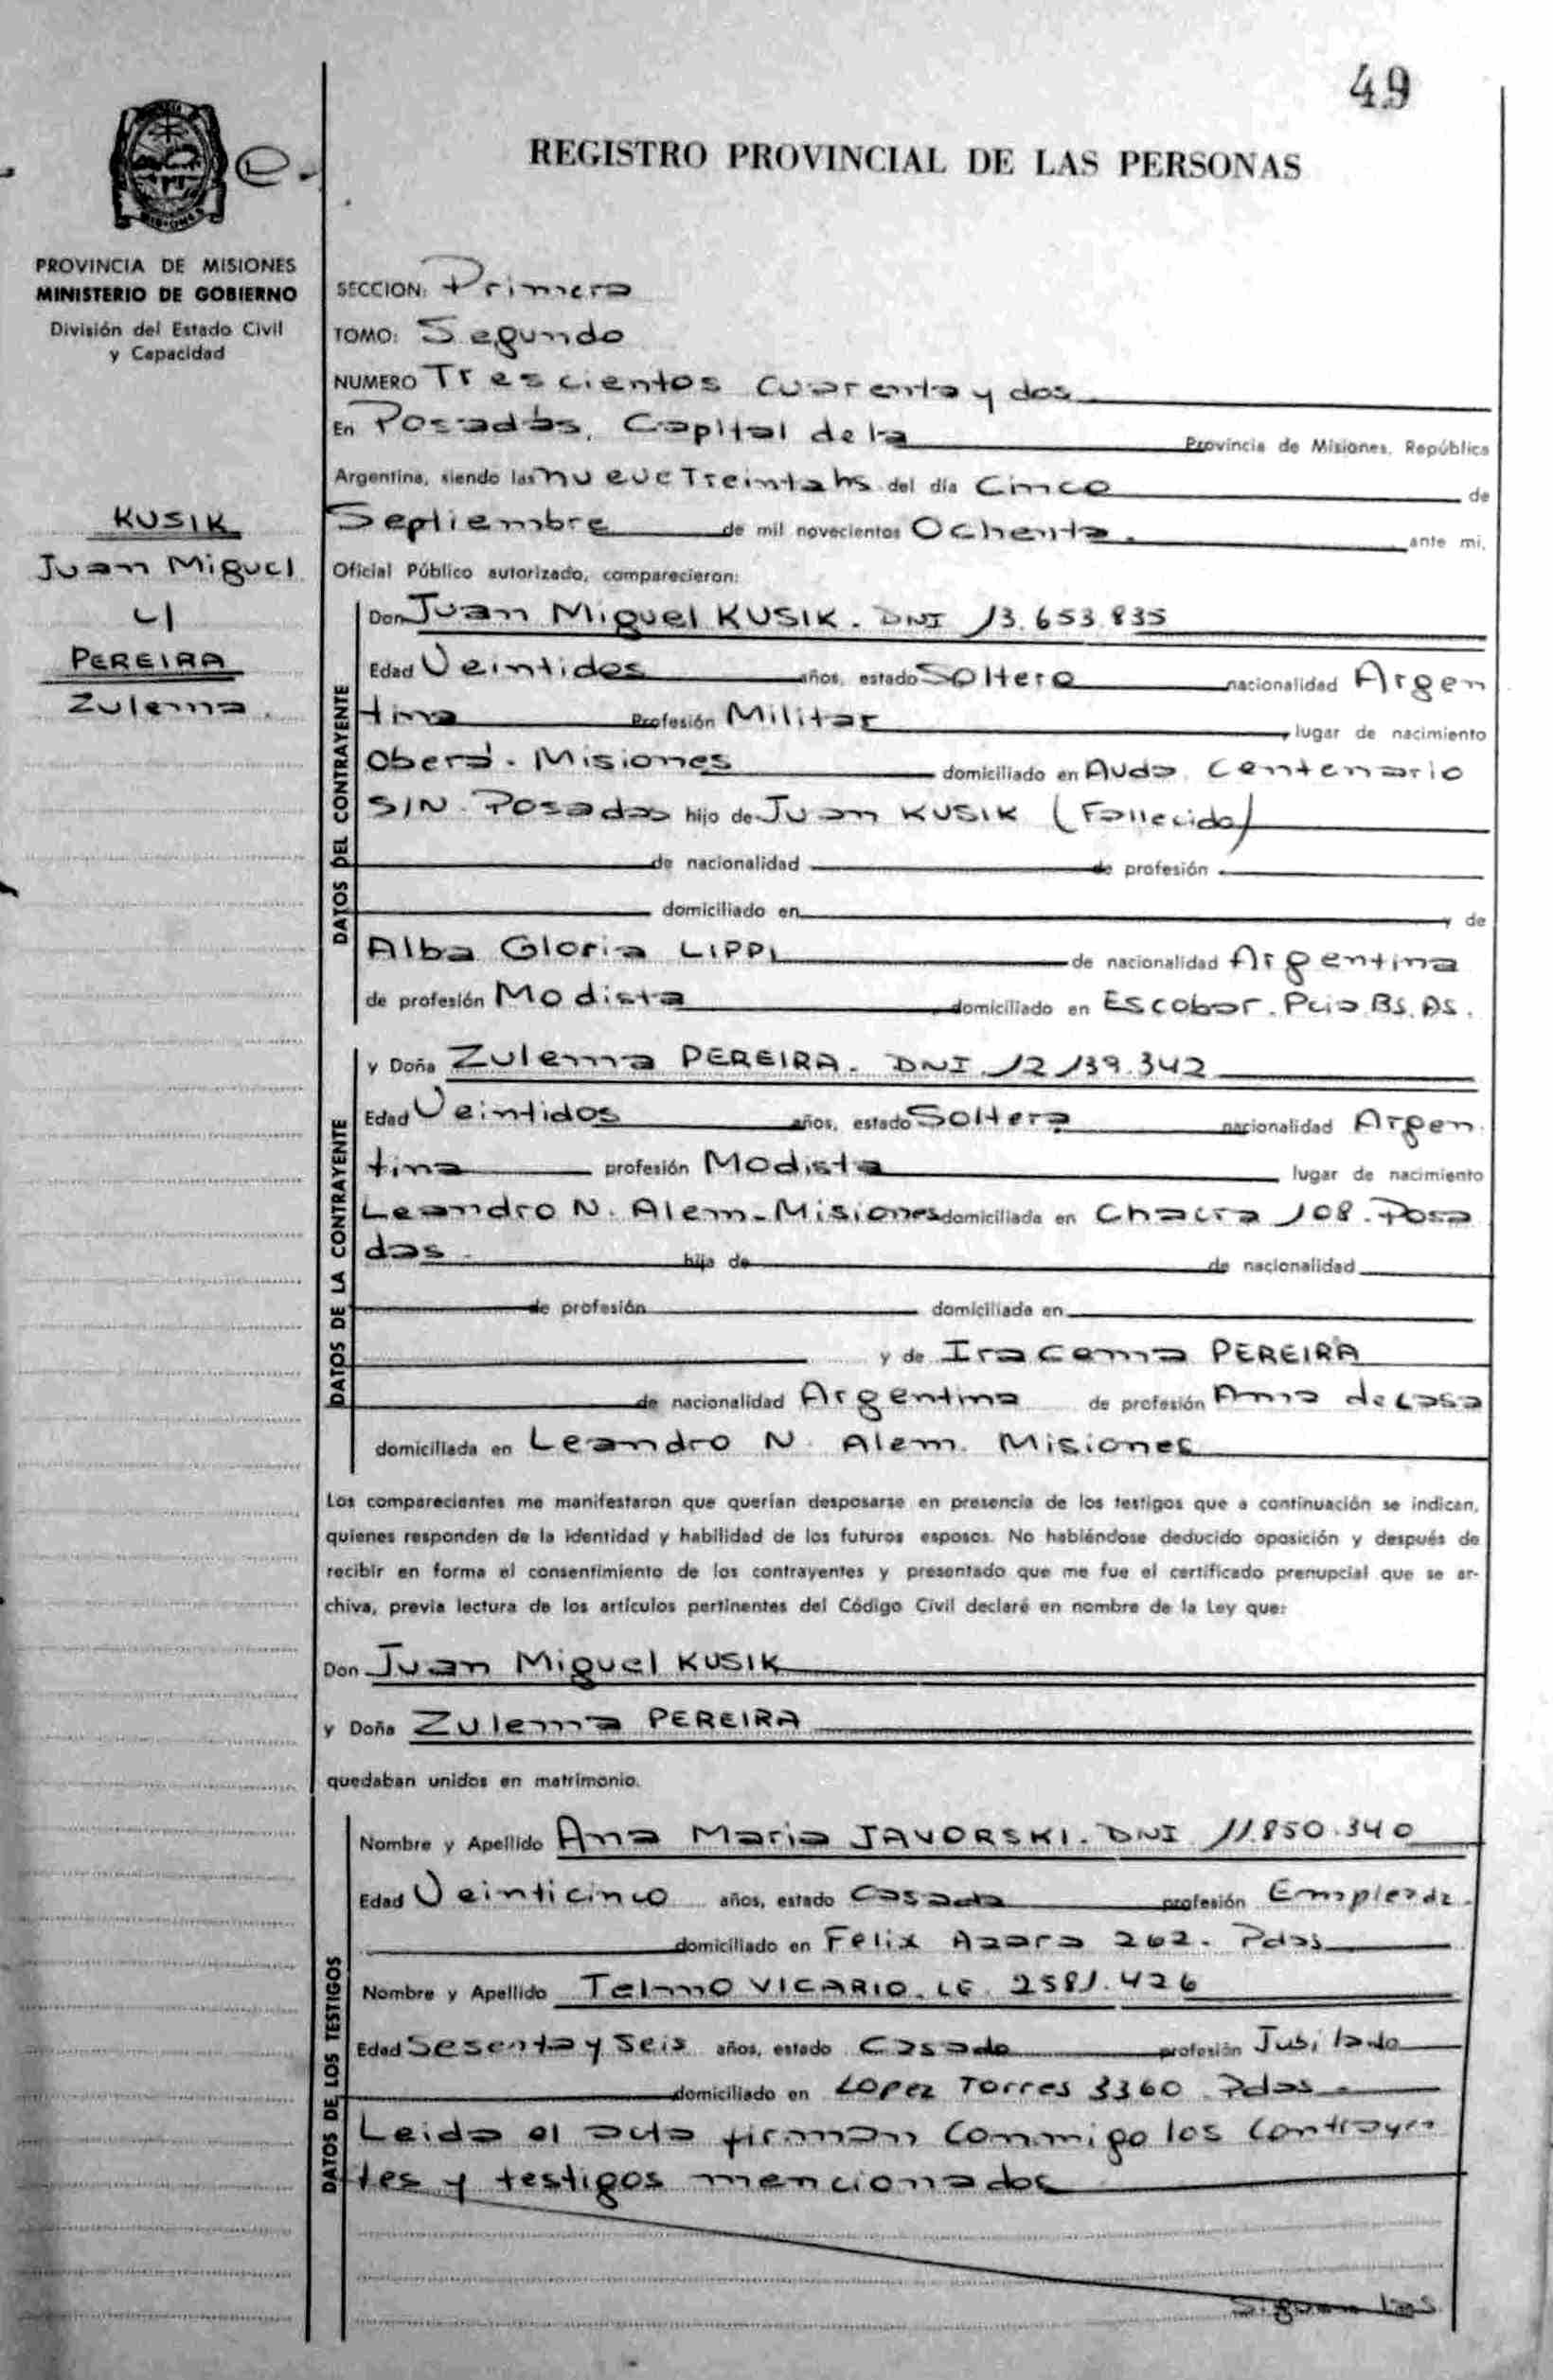 49
REGISTRO PROVINCIAL DE LAS PERSONAS
PROVINCIA DE MISIONES
MINISTERIO DE GOBIERNO
División del Estado Civil
y Capacidad
KUSIK
Juan Miguel
y
PEREIRA
Zulema.
SECCION: Primera
TOMO: Segundo
NUMERO Trescientos cuarenta y dos
En Posadas, Capital de la Provincia de Misiones, República
Argentina, siendo las nueve Treinta hs del día Cinco de
Septiembre de mil novecientos Ochenta. ante mi,
Oficial Público autorizado, comparecieron:
DATOS DEL CONTRAYENTE
Don Juan Miguel KUSIK. DNI 13.653.835
Edad Veintidos años, estado Soltero nacionalidad Argen
tina Profesión Militar lugar de nacimiento
Oberá. Misiones domiciliado en Avda. Centenario
S/N. Posadas hijo de Juan KUSIK (Fallecido)
de nacionalidad de profesión
domiciliado en y de
Alba Gloria LIPPI de nacionalidad Argentina
de profesión Modista domiciliado en Escobar. Pcia Bs. As.
DATOS DE LA CONTRAYENTE
y Doña Zulema PEREIRA. DNI 12.139.342
Edad Veintidos años, estado Soltera nacionalidad Argen
tina profesión Modista lugar de nacimiento
Leandro N. Alem-Misiones domiciliada en Chacra 108. Posa
das. hija de de nacionalidad
de profesión domiciliada en
y de Iracema PEREIRA
de nacionalidad Argentina de profesión Ama de casa
domiciliada en Leandro N. Alem. Misiones
Los comparecientes me manifestaron que querían desposarse en presencia de los testigos que a continuación se indican,
quienes responden de la identidad y habilidad de los futuros esposos. No habiéndose deducido oposición y después de
recibir en forma el consentimiento de los contrayentes y presentado que me fue el certificado prenupcial que se ar-
chiva, previa lectura de los artículos pertinentes del Código Civil declaré en nombre de la Ley que:
Don Juan Miguel KUSIK
y Doña Zulema PEREIRA
quedaban unidos en matrimonio.
DATOS DE LOS TESTIGOS
Nombre y Apellido Ana Maria JAVORSKI. DNI 11.850.340
Edad Veinticinco años, estado Casada profesión Empleada.
domiciliado en Felix Azara 262. Pdas
Nombre y Apellido Telmo VICARIO. LE. 2581.426
Edad Sesenta y Seis años, estado Casado profesión Jubilado
domiciliado en Lopez Torres 3360 Pdas.
Leida el acta firman conmigo los contrayen
tes y testigos mencionados
Siguen las